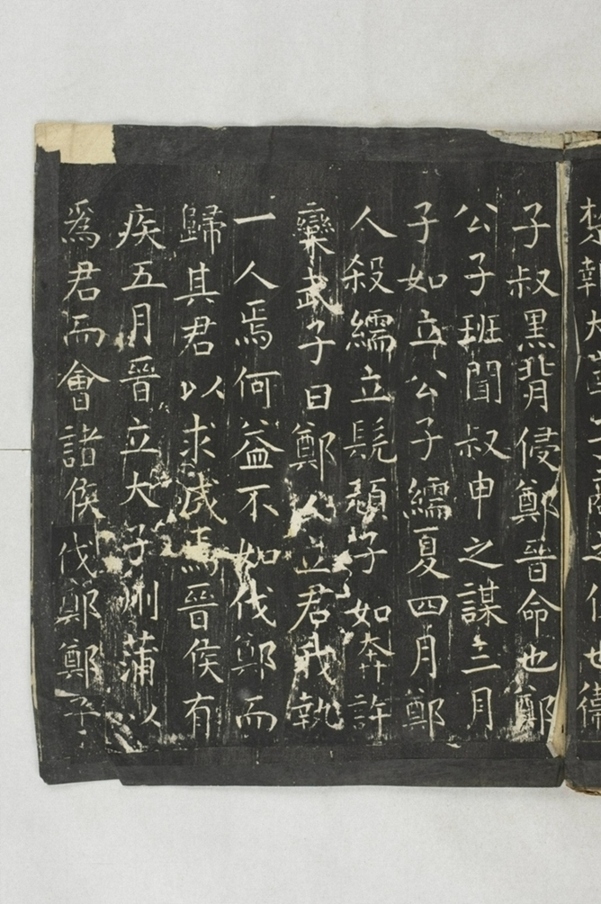 楚報大宰子商之使也衛
子叔黑背侵鄭晉命也鄭
公子班聞叔申之謀三月
子如立公子繻夏四月鄭
人殺繻立髡頑子如奔許
欒武子曰鄭人立君我執
一人焉何益不如伐鄭而
歸其君以求成焉晉侯有
疾五月晉立大子州蒲以
爲君而會諸侯伐鄭鄭子